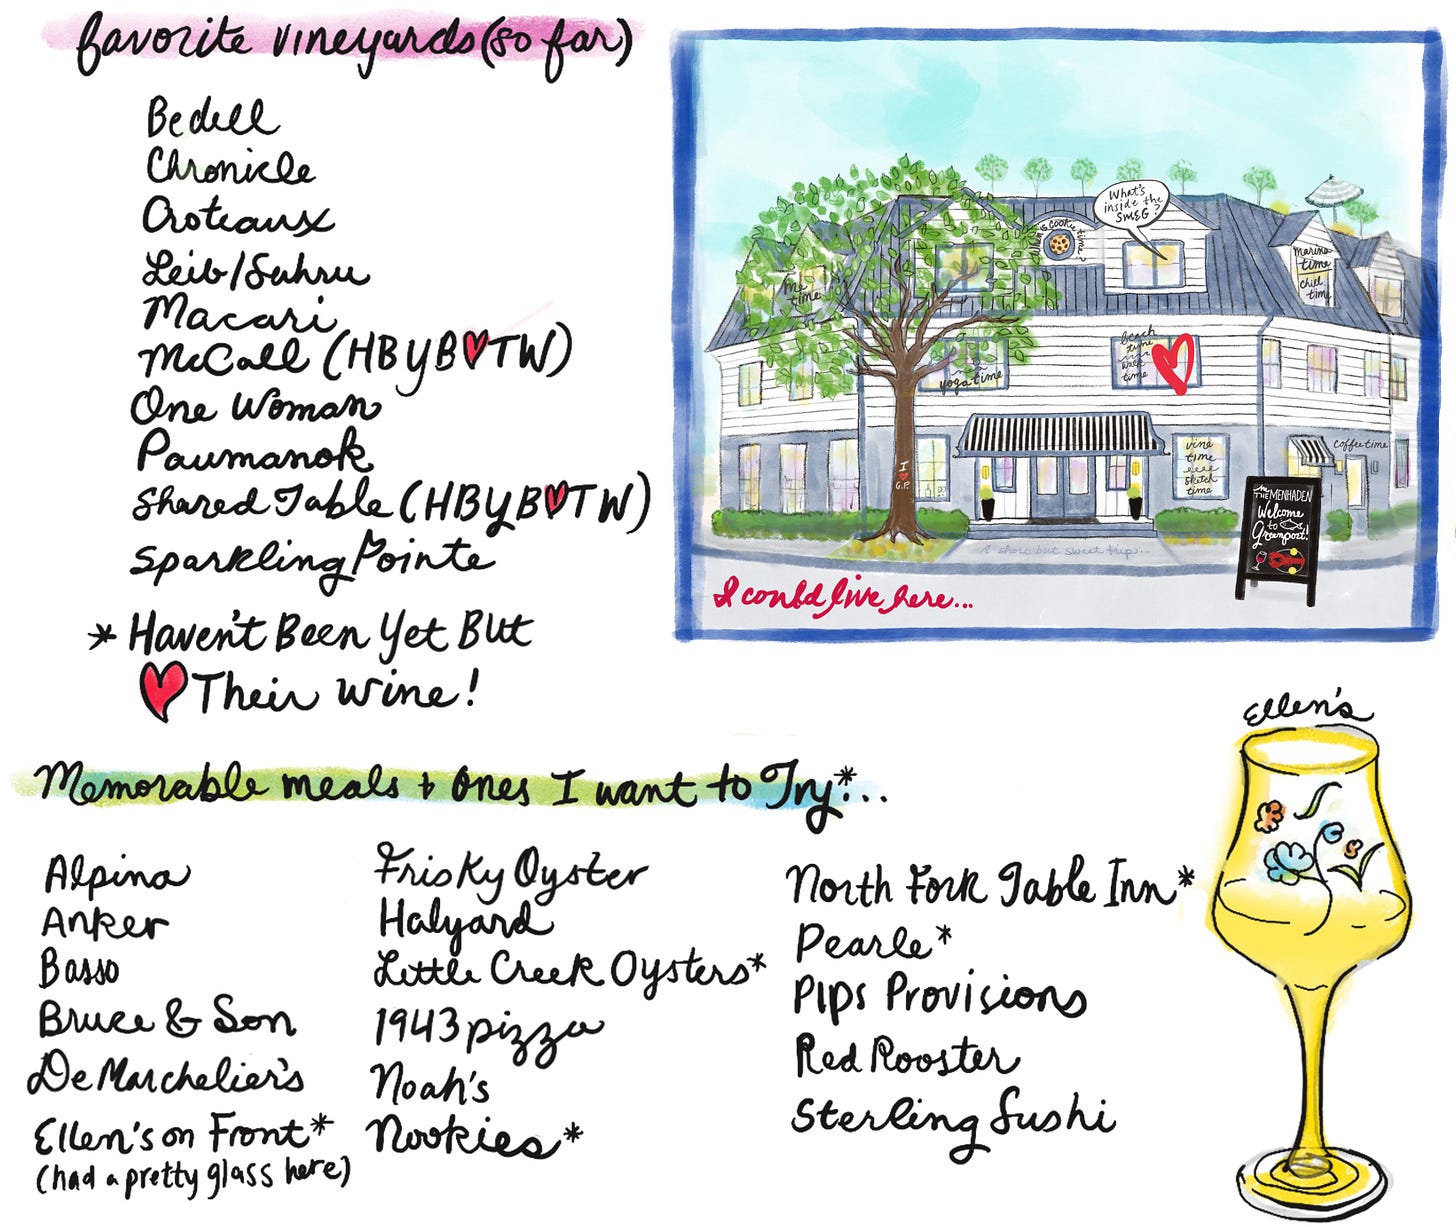 favorite vineyards (so far)
Bedell
Chronicle
Croteaux
Leib/Suhru
Macari
McCall (HBYB♥TW)
One Woman
Paumanok
Shared Table (HBYB♥TW)
Sparkling Pointe
* Haven't Been Yet But
♥ Their wine!
What's
inside the
SMEG?
cookie time
me
time
marina
time
chill
time
beach
time
walk
time
yoga time
wine
time
sketch
time
coffee time
I
♥
G.P.
THE MENHADEN
Welcome
to
Greenport!
A short but sweet trip...
I could live here...
Memorable meals + ones I want to Try*...
Alpina
Anker
Basso
Bruce & Son
DeMarchelier's
Ellen's on Front*
(had a pretty glass here)
Frisky Oyster
Halyard
Little Creek Oysters*
1943 pizza
Noah's
Nookies*
North Fork Table Inn*
Pearle*
Pips Provisions
Red Rooster
Sterling Sushi
Ellen's